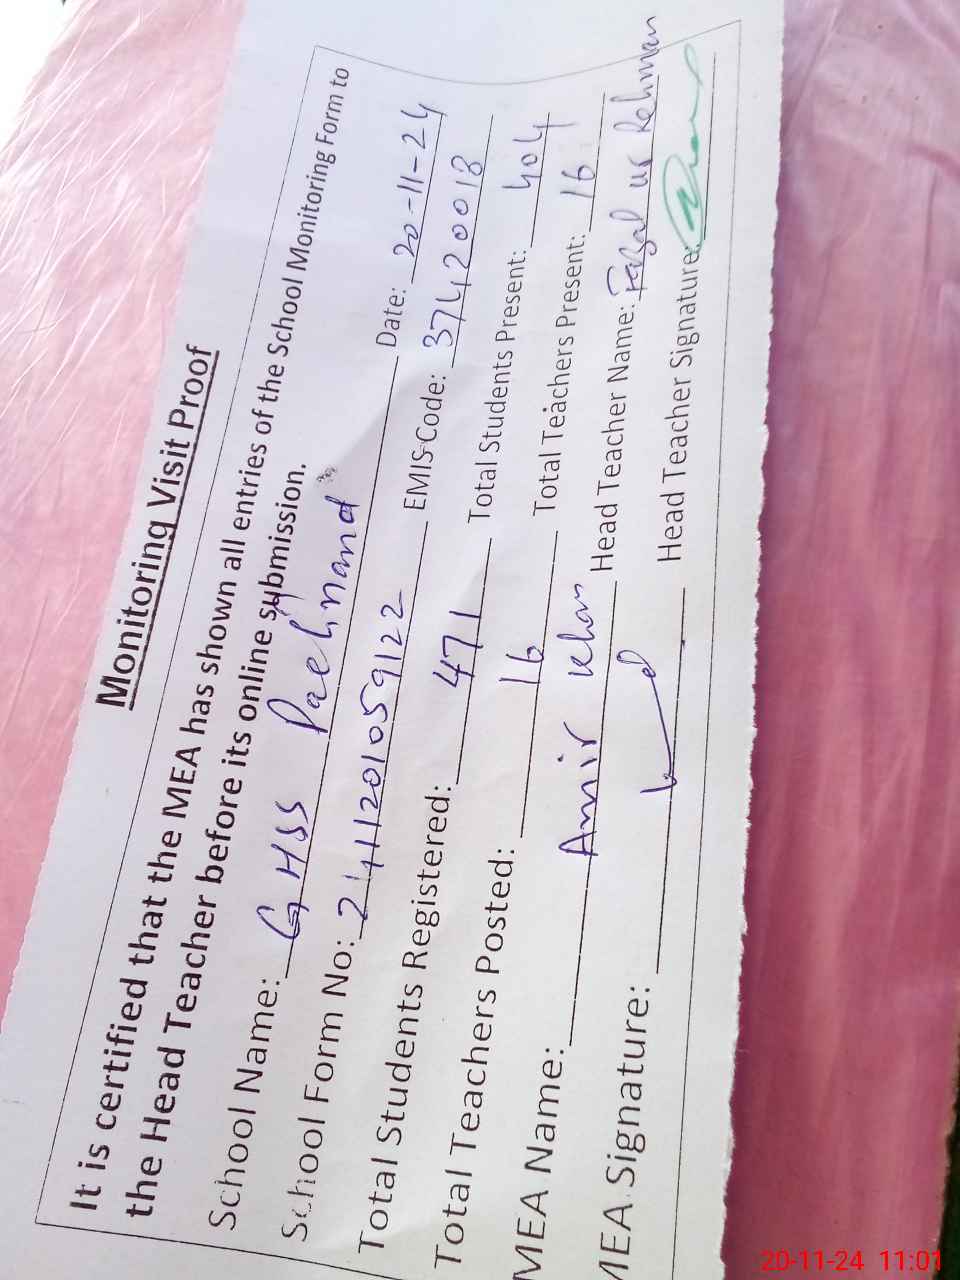 Monitoring Visit Proof
It is certified that the MEA has shown all entries of the School Monitoring Form to
the Head Teacher before its online submission.
School Name: GHSS Date: 20-11-24
School Form No: 2411201059122 EMIS Code: 37420018
Total Students Registered: 471 Total Students Present: 404
Total Teachers Posted: 16 Total Teachers Present: 16
MEA Name: Amir Khan Head Teacher Name: Fazal ur Rehman
MEA Signature: Head Teacher Signature:
20-11-24 11:01